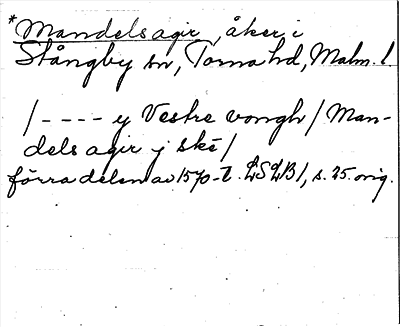 *Mandels agir, åker i
Stångby sn, Torna hd, Malm. l.
/---- y Vestre vongh/ Man-
dels agir y skě/
förra delen av 1570-t. LSLB1, s. 25. orig.